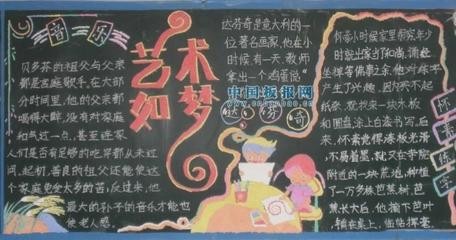 音乐
贝多芬的祖父与父亲
都是宫庭歌手,在大部
分时间里,他的父亲都
喝得大醉,没有对家庭
和气过一点,甚至连家
人们是否有足够的吃穿都从未过
问。起初,善良的祖父还能使这
个家庭免受太多的苦,反过来,他
最大的孙子的音乐才能也
使老人感
艺术
如梦
达芬奇是意大利的一
位著名画家,他在小
时候有一天,教师
拿出一个鸡蛋说"
中国板报网
达芬奇
怀素小时候家里很穷,年少
时就出家当了和尚,诵经
坐禅等佛事之余,他对练字
产生了兴趣,因为买不起
纸张,就找来一块木板
和圆盘,涂上白漆书写,后
来,怀素觉得漆板光滑,
不易着墨,就又在寺院
附近的一块荒地,种植
了一万多株芭蕉树,芭
蕉长大后,他摘下芭叶
铺在桌上,临帖挥毫
怀素练字